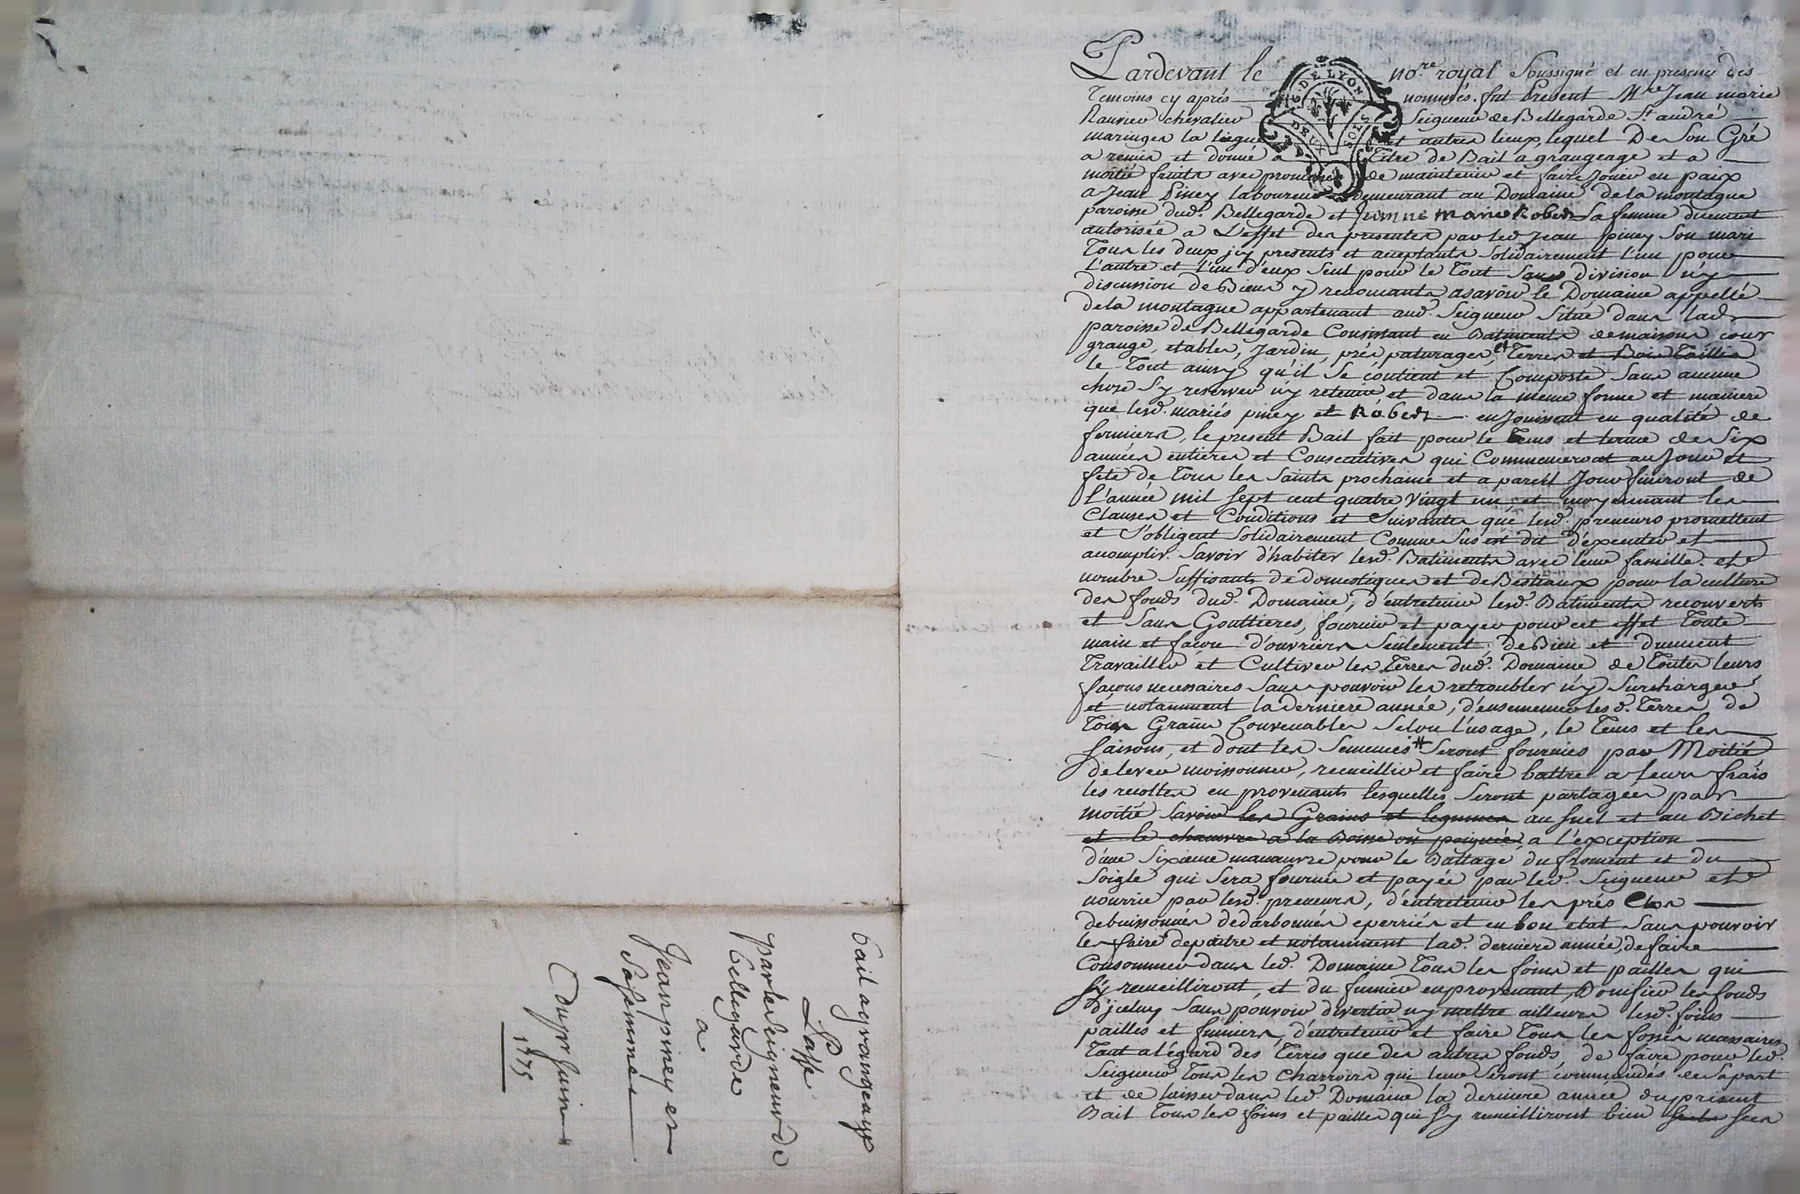 bail a grangeage
Passé
par le Seigneur de
bellegarde
a
Jean piney et
Sa femme
Du 1er Juin
1775
G. DE LYON
DEUX SOLS
Pardevant le no.re royal Soussigné et en presence des
Temoins cy après nommés. fut Present M.re Jean marie
chevalier Seigneur de Bellegarde St. andré
maringes la liegue et autres lieux, lequel De Son Gré
a remis et donné a Titre de Bail a grangeage et a
moitié fruits avec promesse de maintenir et faire Jouir en paix
a Jean Piney laboureur demeurant au Domaine de la montagne
paroisse dud. Bellegarde et marie Robert Sa femme duement
autorisée a L'effet des presentes par led. Jean piney Son mari
Tous les deux jcy presents et acceptants Solidairement l'un pour
l'autre et l'un d'eux Seul pour le Tout Sans division n'y
discussion de Biens y renoncants asavoir le Domaine appellé
de la montagne appartenant aud. Seigneur Situé dans lad.
paroisse de Bellegarde Consistant en Batiments de maisons cour
grange, etables, Jardin, prés paturages, et Terres et Bois Taillis
le Tout ainsy qu'il Se contient et Composte Sans aucune
chose S'y reserver n'y retenir et dans la meme forme et maniere
que lesd. mariés piney et Robert en Jouissent en qualité de
fermiers, le present Bail fait pour le Tems et terme de Six
années entieres et Consecutives qui Commenceront au Jour et
fete de Tous les Saints prochaine et a pareil Jour finiront de
l'année mil Sept cent quatre Vingt un, et moyennant les
Clauses et Conditions et Suivantes que lesd. preneurs promettent
et S'obligent Solidairement Comme Sus est dit d'executer et
accomplir. Savoir d'habiter lesd. Batiments avec leur famille. et
nombre Suffisants de domestiques et de Bestiaux pour la culture
des fonds dud. Domaine, d'entretenir lesd. Batiments recouverts
et Sans Gouttieres, fournir et payer pour cet effet Toute
main et facon d'ouvriers Seulement. de Bien et duement
Travailler et Cultiver les Terres dud. Domaine de Toutes leurs
façons necessaires Sans pouvoir les retroubler n'y Surcharger
et notamment la derniere année, d'ensemencer lesd. Terres de
Tous Grains Convenables Selon l'usage, le Tems et les
Saisons, et dont les Semences # Seront fournies par Moitié
de lever moissonner, recueillir et faire battre a leurs frais
les recoltes en provenants lesquelles Seront partagées par
moitié Savoir les Grains et legumes au Suel et au Bichet
et le chanvre a la Boisse ou poignée, a l'exception
d'une Sixieme manoeuvre pour le Battage du froment et du
Soigle qui Sera fournie et payée par led. Seigneur et
nourrie par lesd. preneurs, d'entretenir les prés Clos
debuissonnés dedarbonnés eperriés et en bon etat Sans pouvoir
les faire depaitre et notamment lad. derniere année, de faire
Consommer dans led. Domaine Tous les foins et pailles qui
S'y recueilliront, et du fumier en provenant, Bonifier les fonds
d'jceluy Sans pouvoir divertir n'y mettre ailleurs lesd. foins
pailles et fumiers, d'entretenir et faire Tous les fossés necessaires
Tant a l'égard des Terres que des autres fonds, de faire pour led.
Seigneur Tous les Charrois qui leur Seront commandés de Sa part
et de laisser dans led. Domaine la derniere année du present
Bail Tous les foins et pailles qui S'y recueilliront bien Secs